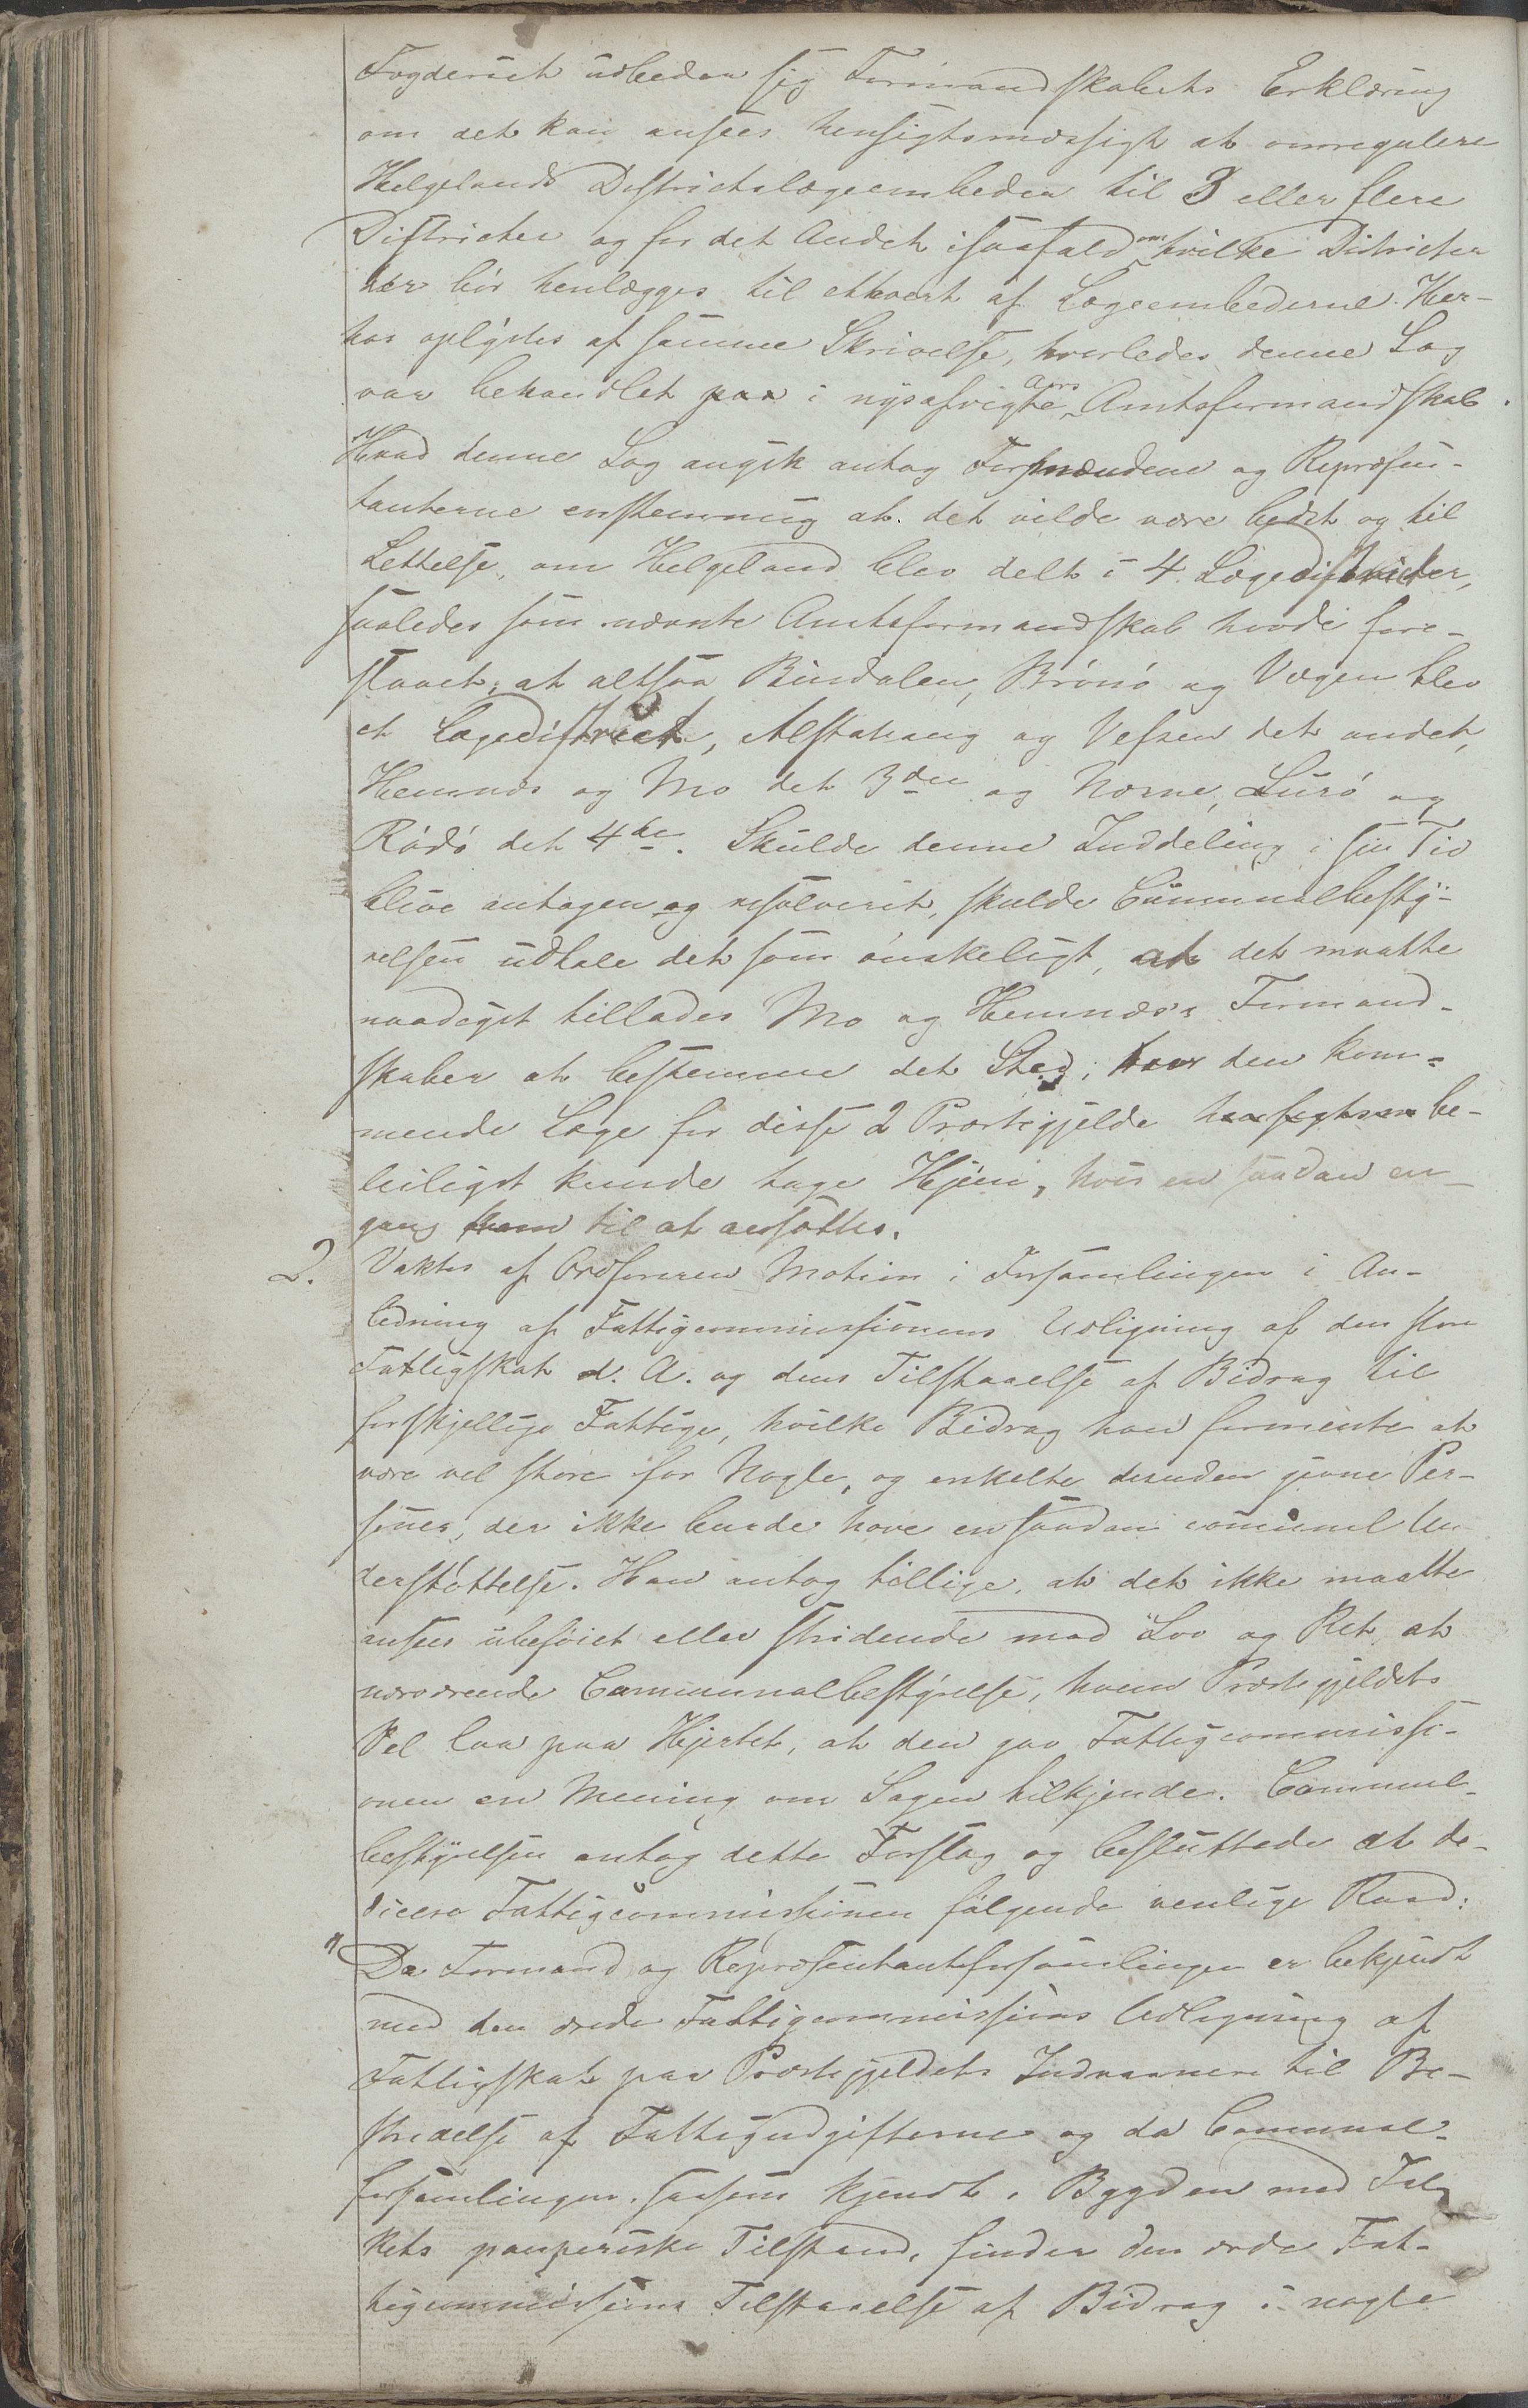 Fogderiet udbeder sig Formandskabets Erklæring
om det kan ansees hensigtsmæssigt at omregulere
Helgelands Districtslægeembeder til 3 eller flere
Districter og for det Andet isaafald om hvilke Districter
der bør henlægges til ethvert af Lægeembederne. Her-
hos oplystes af samme Skrivelse, hvorledes denne Sag
var behandlet paa i nysafvigte Aars Amtsformandskab.
Hvad denne Sag angik antog Formændene og Repræsen-
tanterne enstemmig at det vilde være bedst og til
Lettelse, om Helgeland blev delt i 4 Lægedistricter,
saaledes som nævnte Amtsformandskab havde fore-
slaaet, at altsaa Bindalen, Brønø og Vegen blev
et Lægedistrict, Alstahaug og Vefsen det andet,
Hemnæs og Mo det 3die og Næsne, Lurø og
Rødø det 4de. Skulde denne Inddeling i sin Tid
blive antagen og resolveret, skulde Communalbesty-
relsen udtale det som ønskeligt, at det maatte
naadigst tillades Mo og Hemnæs's Formand-
skaber at bestemme det Sted, hvor den kom-
mende Læge for disse 2 Præstegjelde be-
leiligst kunde tage Hjem, hvis en saadan en-
gang kom til at ansættes.
2. Vaktes af Ordføreren Motion i Forsamlingen i An-
ledning af Fattigcommissionens Udligning af den store
Fattigskat d. A. og dens Tilstaaelse af Bidrag til
forskjellige Fattige, hvilke Bidrag han formente at
være vel store for Nogle, og enkelte desuden givne Per-
soner, der ikke burde have en saadan communal Un-
derstøttelse. Han antog tillige, at det ikke maatte
ansees ubeføiet eller stridende mod Lov og Ret, at
nærværende Communalbestyrelse, hvem Præstegjeldets
Vel laa paa Hjertet, at den gav Fattigcommissi-
onen en Mening om Sagen tilkjende. Commual-
bestyrelsen antog dette Forslag og besluttede at de-
dicere Fattigcommissionen følgende venlige Raad:
"Da Formand og Repræsentantforsamlingen er bekjendt
med den ærede Fattigcommissions Udligning af
Fattigskat paa Præstegjeldets Indvaanere til Be-
stridelse af Fattigudgifterne og da Communal-
forsamlingen, saasom kjendt i Bygden med Fol-
kets pauperiske Tilstand, finder den ærede Fat-
tigcommissions Tilstaaelse af Bidrag i nogle